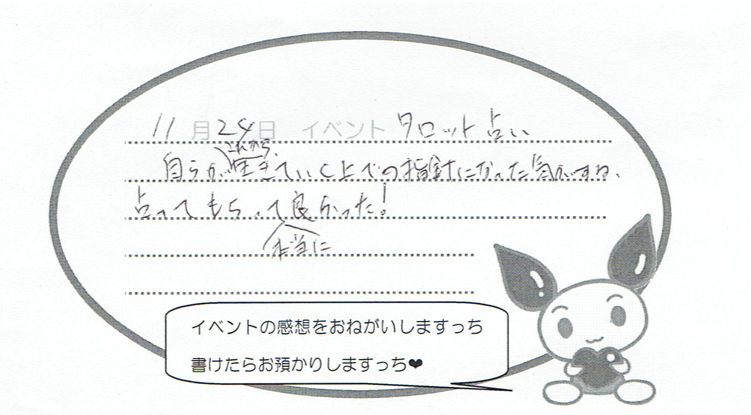 11月24日 イベント タロット占い
これから
自分が生きていく上での指針になった気がする。
占ってもらって良かった!
本当に
イベントの感想をおねがいしますっち
書けたらお預かりしますっち❤